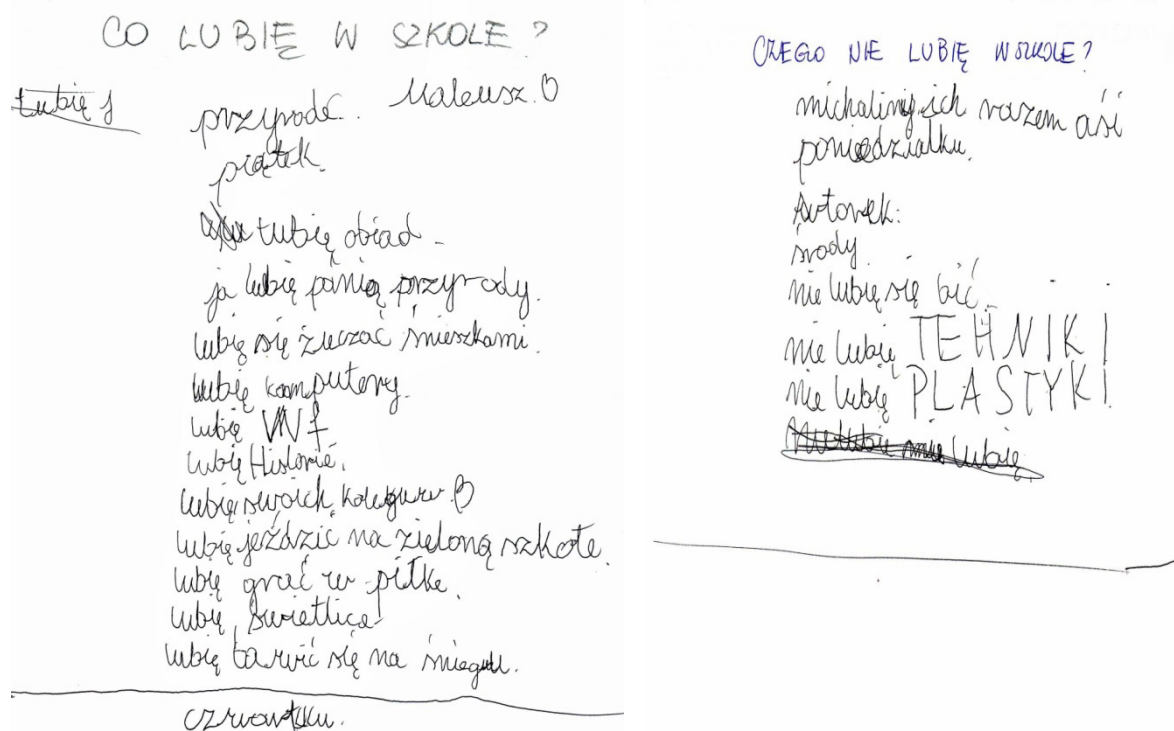 CO LUBIĘ W SZKOLE?
Łubię j
Mateusz. O
przyrodę.
piątek.
łubię obiad -
ja lubię panią przyrody.
lubię się żuczać śnieszkami.
lubię komputery.
lubię WNf
lubię Historię.
lubię swoich koleguw. B
lubię jeździć na zieloną szkołę.
lubię grać w piłkę.
lubię świetlicę
lubię bawić się na śniegu.
czwartku.
CZEGO NIE LUBIĘ W SZKOLE?
michaliny ich razem
poniedziałku.
wtorek:
środy.
nie lubię się bić.
nie lubię TEHNIKI
nie lubię PLASTYKI